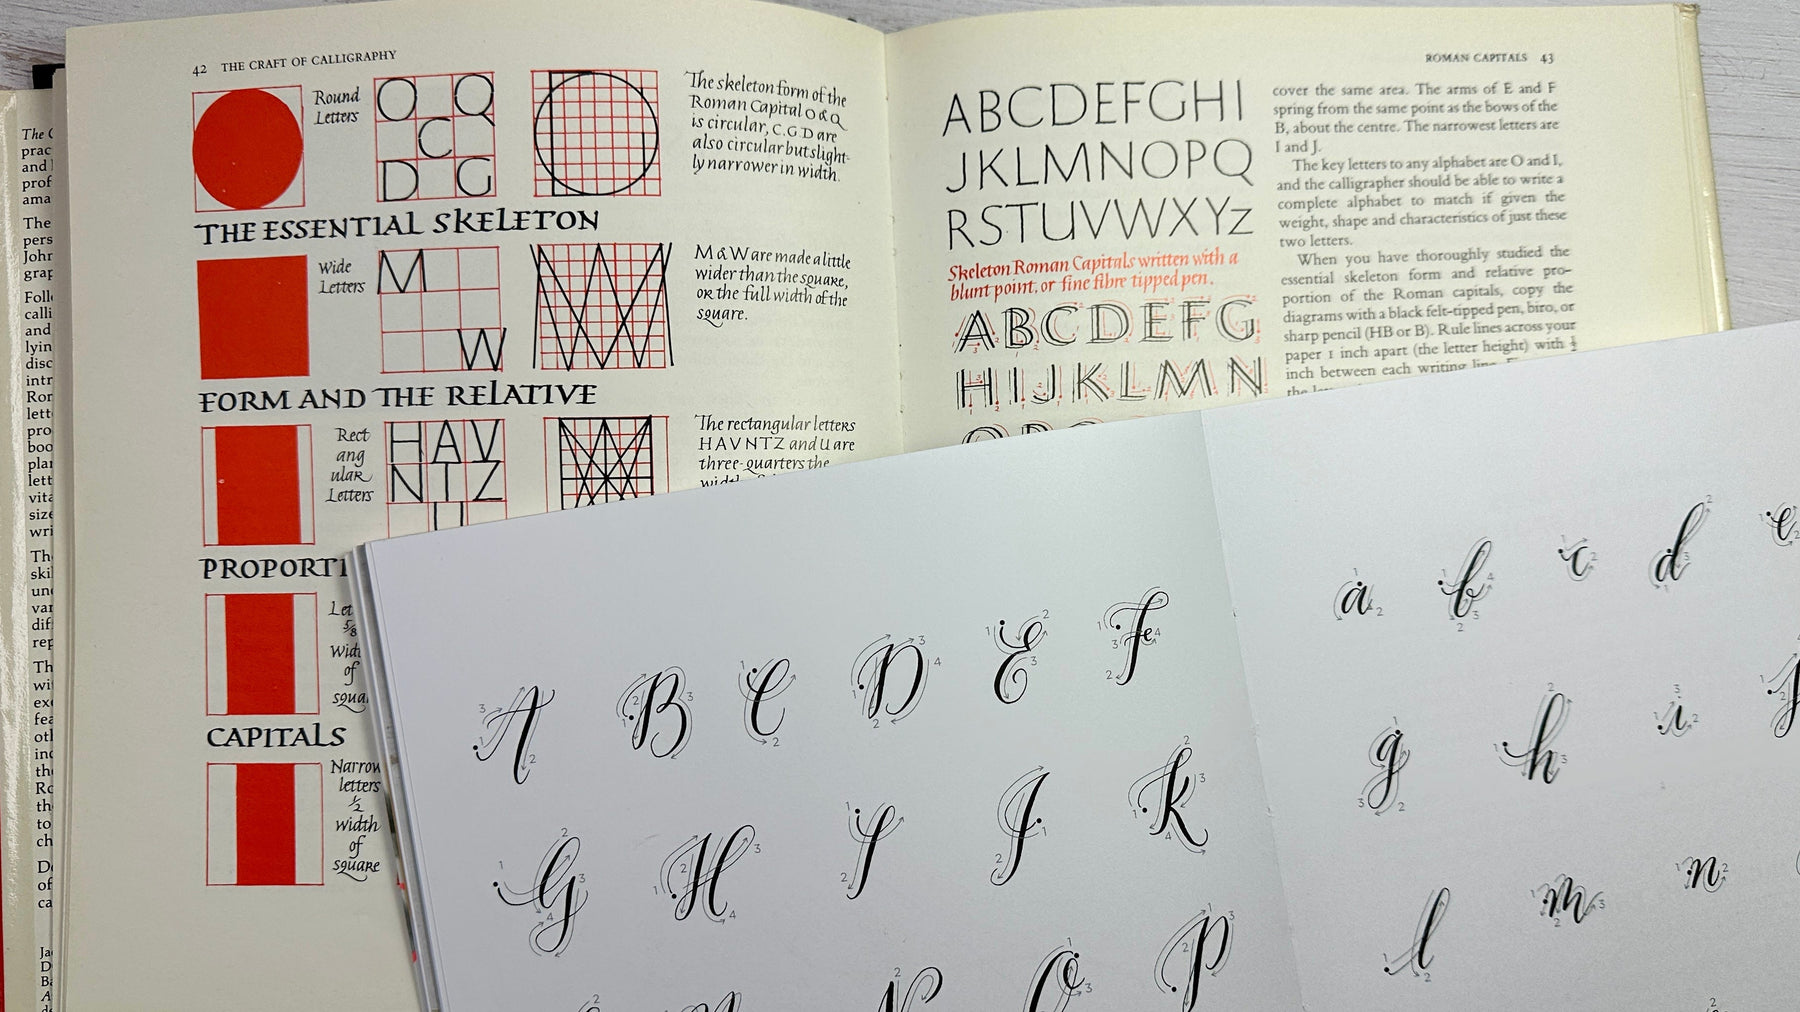 42 THE CRAFT OF CALLIGRAPHY
Round
Letters
O Q
C
D G
The skeleton form of the
Roman Capital O & Q
is circular, C. G. D are
also circular but slight-
ly narrower in width.
THE ESSENTIAL SKELETON
Wide
Letters
M
W
M & W are made a little
wider than the square,
or the full width of the
square.
FORM AND THE RELATIVE
Rect
ang
ular
Letters
HAV
NTZ
U
The rectangular letters
HAVNTZ and U are
three-quarters the
PROPORTI
Let
5/8
Widt
of
squa
CAPITALS
Narrow
letters
1/2
width
of
square
ROMAN CAPITALS 43
ABCDEFGHI
JKLMNOPQ
RSTUVWXYZ
Skeleton Roman Capitals written with a
blunt point, or fine fibre tipped pen.
ABCDEFG
HIJKLMN
cover the same area. The arms of E and F
spring from the same point as the bows of the
B, about the centre. The narrowest letters are
I and J.
The key letters to any alphabet are O and I,
and the calligrapher should be able to write a
complete alphabet to match if given the
weight, shape and characteristics of just these
two letters.
When you have thoroughly studied the
essential skeleton form and relative pro-
portion of the Roman capitals, copy the
diagrams with a black felt-tipped pen, biro, or
sharp pencil (HB or B). Rule lines across your
paper 1 inch apart (the letter height) with ½
inch between each writing line.
A B C D E F
G H I J K
N O P
a b c d e
g h i
l m n